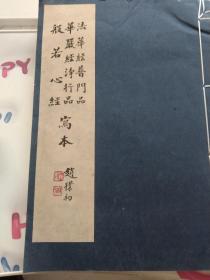 法華經普門品
華嚴經淨行品
般若心經
寫本
趙樸初
PY